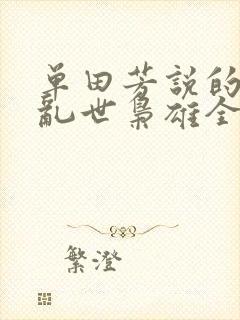 单田芳說的
亂世梟雄全
繁澄